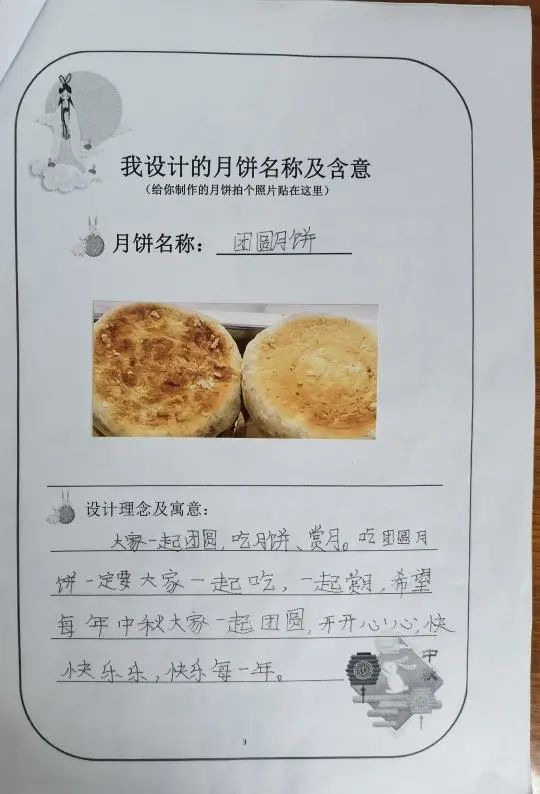 我设计的月饼名称及含意
（给你制作的月饼拍个照片贴在这里）
月饼名称：团圆月饼
设计理念及寓意：
大家一起团圆，吃月饼、赏月。吃团圆月
饼一定要大家一起吃，一起赏月，希望
每年中秋大家一起团圆，开开心心，快
快乐乐，快乐每一年。
中秋
3